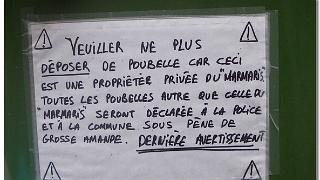 VEUILLER NE PLUS
DÉPOSER DE POUBELLE CAR CECI
EST UNE PROPRIÉTER PRIVÉE DU "MARMARIS"
TOUTES LES POUBELLES AUTRE QUE CELLE DU
"MARMARIS" SERONT DÉCLARÉE À LA POLICE
ET À LA COMMUNE SOUS PÈNE DE
GROSSE AMANDE. DERNIÈRE AVERTISSEMENT